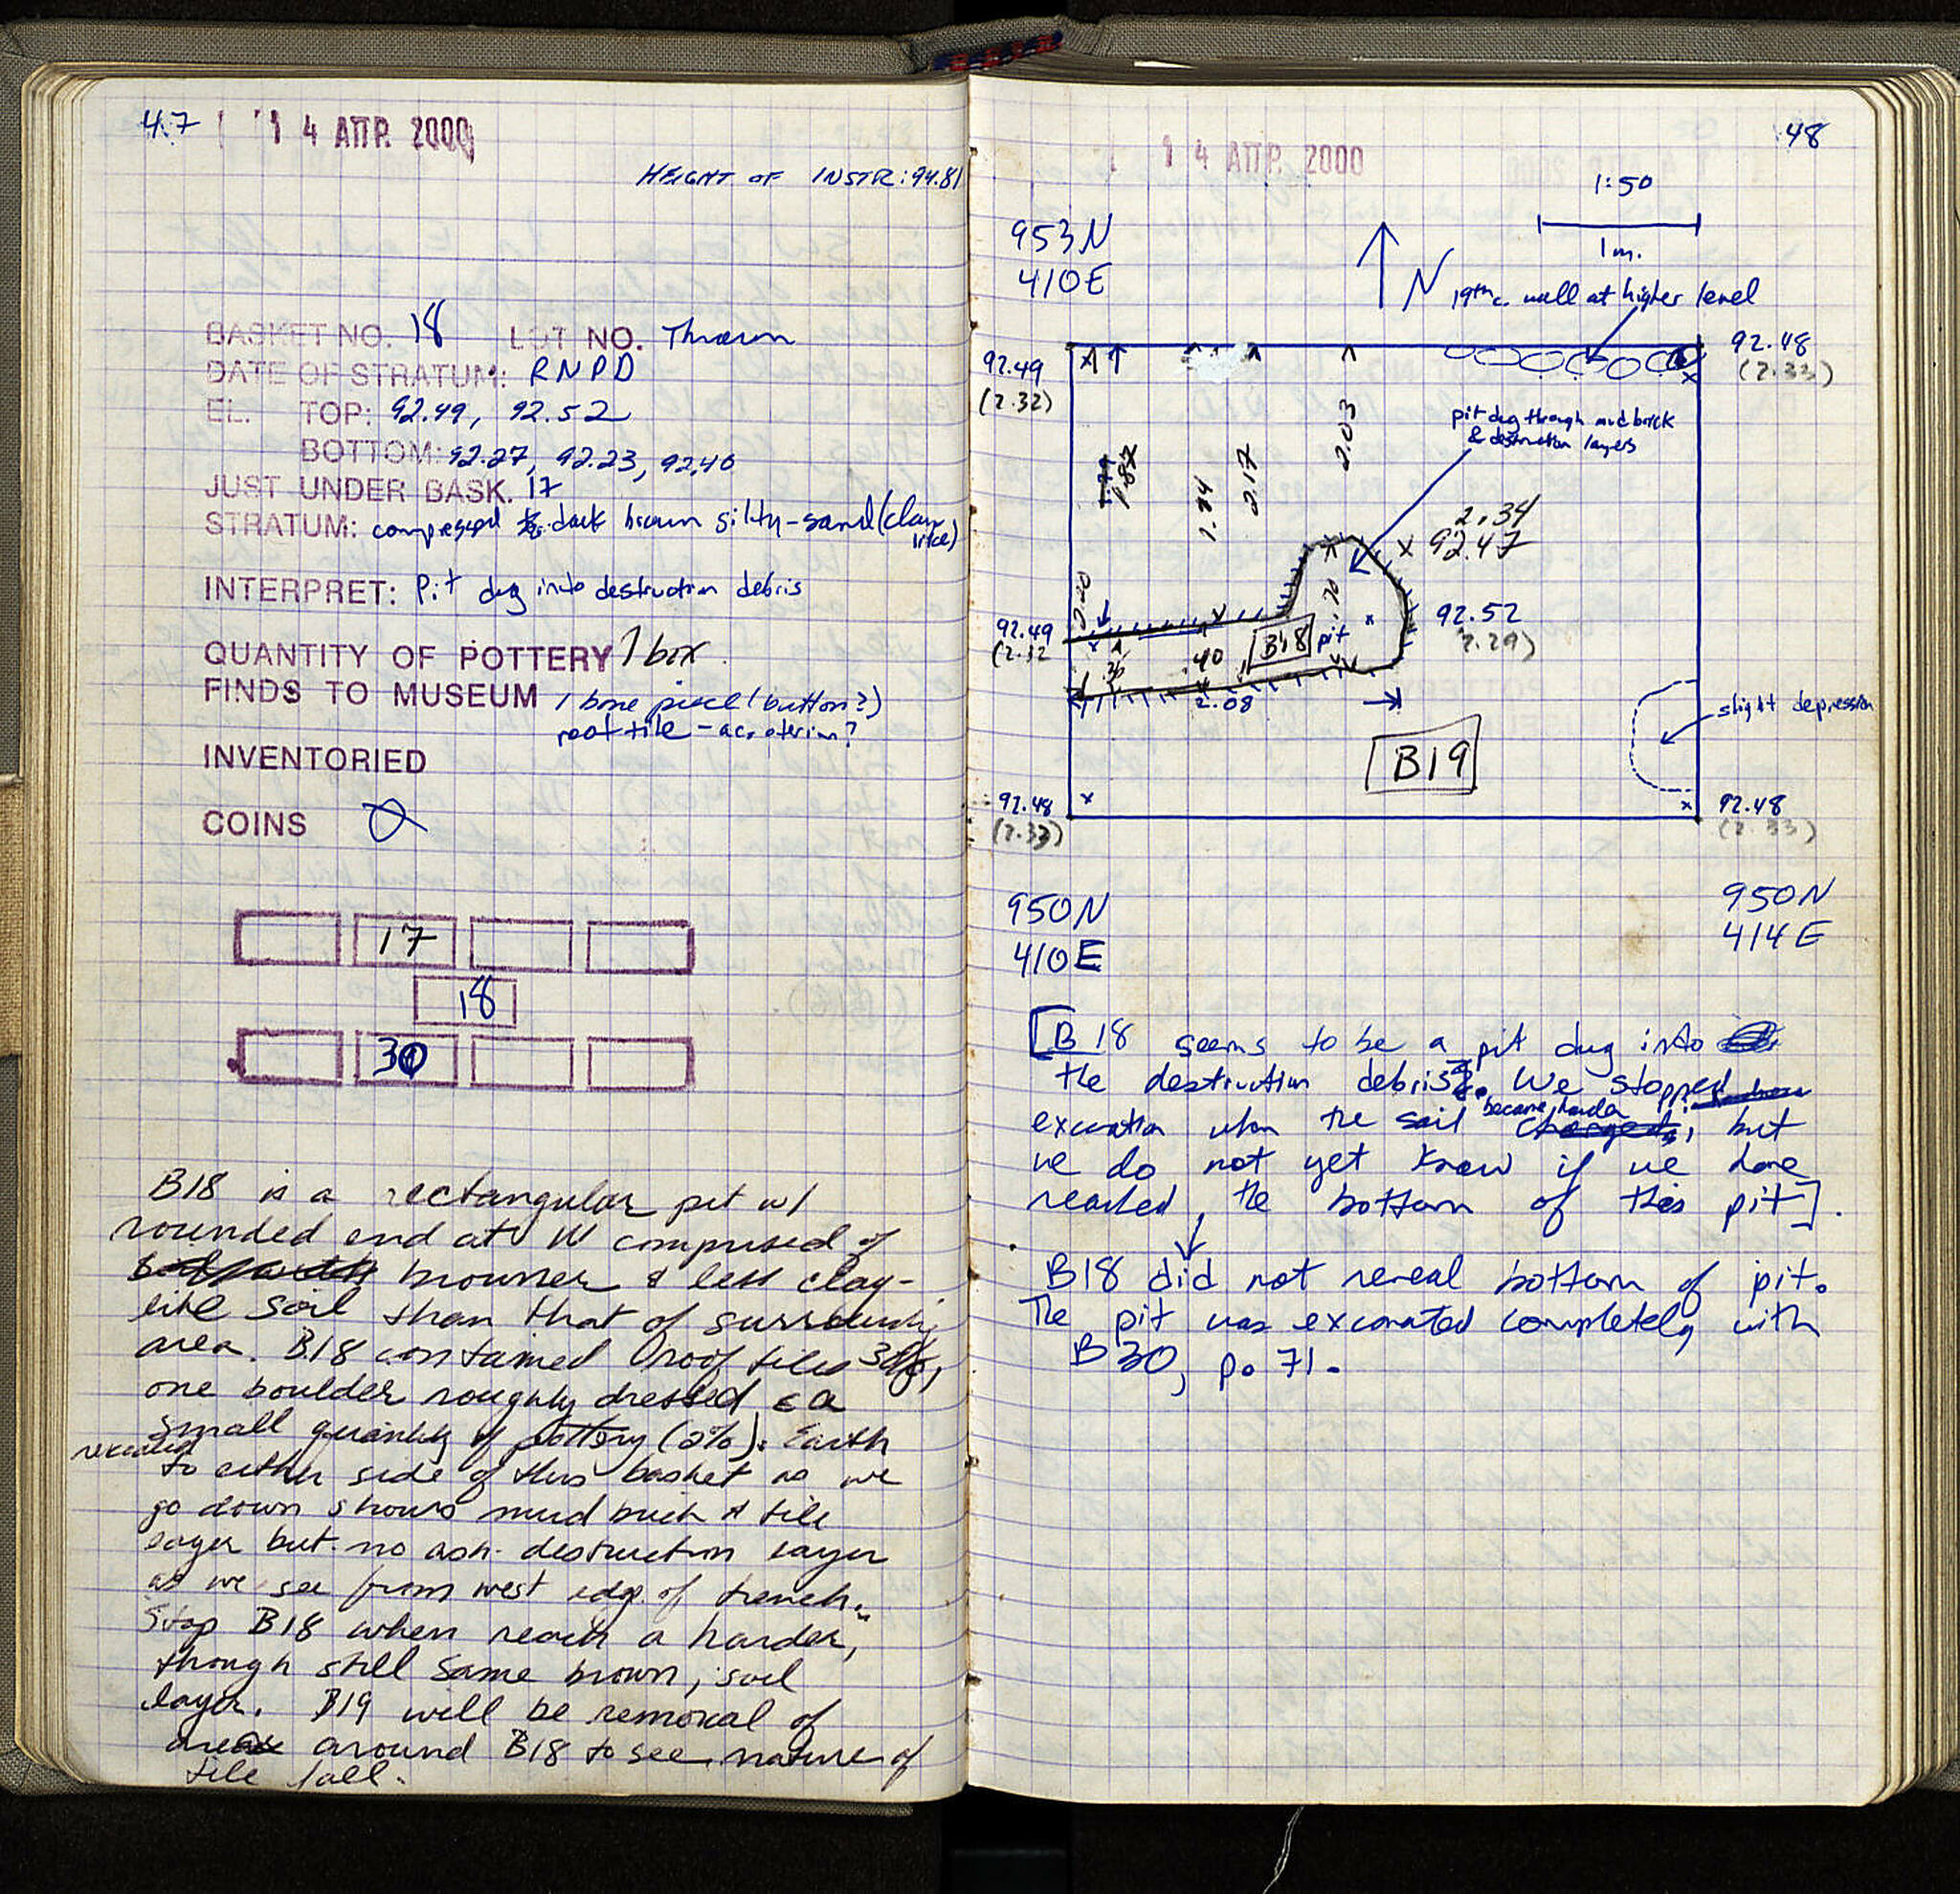 47
14 ΑΠΡ. 2000
HEIGHT OF INSTR: 94.81
BASKET NO. 18 LOT NO. Thrown
DATE OF STRATUM: RNPD
EL. TOP: 92.49, 92.52
BOTTOM: 92.27, 92.23, 92.40
JUST UNDER BASK. 17
STRATUM: compressed dark brown silty-sand (clay
like)
INTERPRET: Pit dug into destruction debris
QUANTITY OF POTTERY 1 box.
FINDS TO MUSEUM 1 bone piece (button?)
roof tile - acroterion?
INVENTORIED
COINS
17
18
30
B18 is a rectangular pit w/
rounded end at W comprised of
browner & less clay-
like soil than that of surrounding
area. B18 contained roof tiles 30%,
one boulder roughly dressed c a
small quantity of pottery (2%). Earth
revealed
to either side of this basket as we
go down shows mud brick & tile
layer but no ash destruction layer
as we see from west edge of trench.
Stop B18 when reach a harder,
though still same brown, soil
layer. B19 will be removal of
area around B18 to see nature of
tile fall.
48
14 ΑΠΡ. 2000
1:50
1m.
953N
410E
N
19th c. wall at higher level
92.49
(2.32)
92.48
(2.33)
pit dug through mud brick
& destruction layers
1.87
1.94
2.17
2.03
2.34
92.47
92.52
2.29)
92.49
(2.32
.40
B18 pit
.70
2.08
slight depression
B19
92.48
(2.33)
92.48
(2.33)
950N
410E
950N
414E
[B18 seems to be a pit dug into
the destruction debris. We stopped
excavation when the soil became harder changed, but
we do not yet know if we have
reached the bottom of this pit].
B18 did not reveal bottom of pit.
The pit was excavated completely with
B30, p. 71.